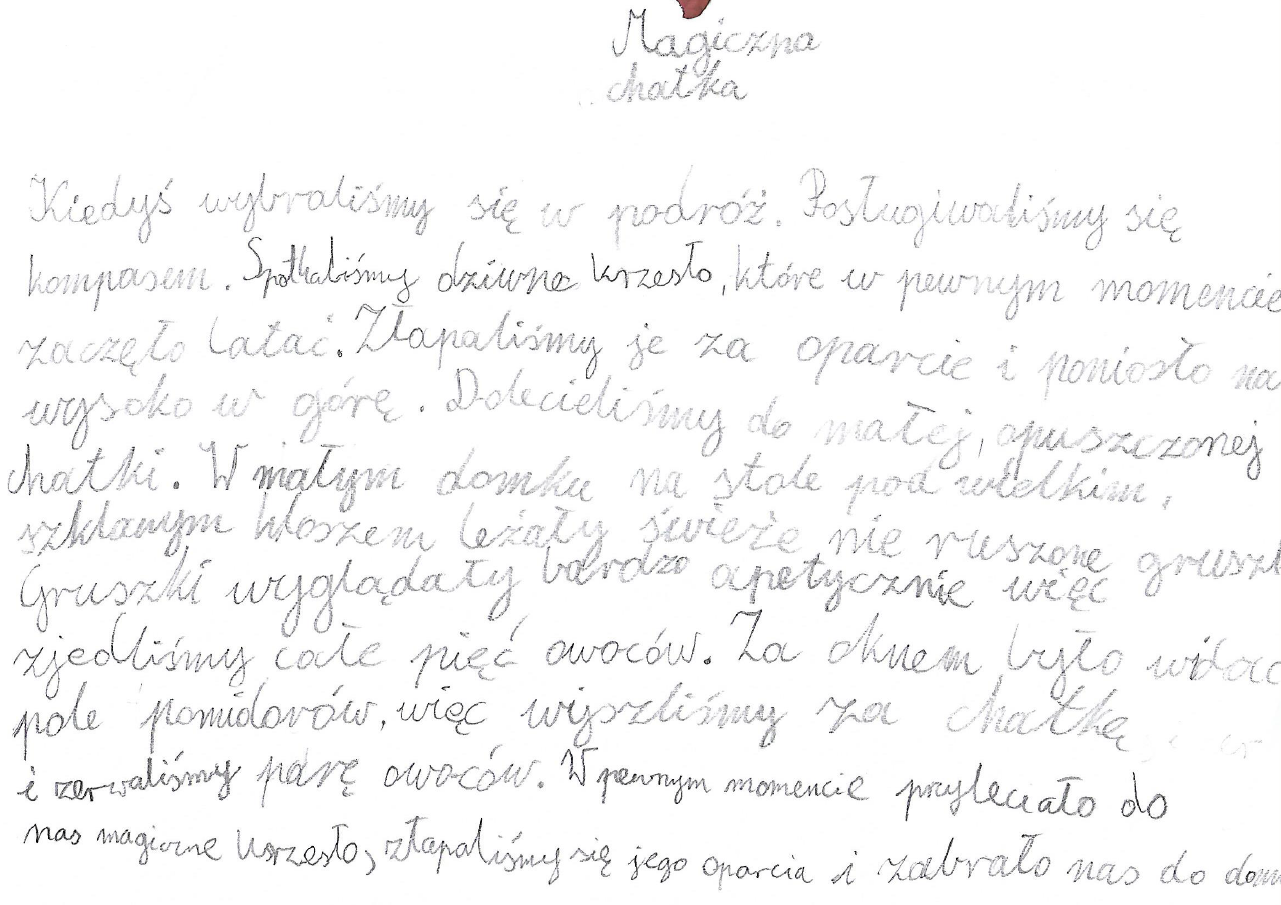 Magiczna
chatka
Kiedyś wybraliśmy się w podróż. Posługiwaliśmy się
kompasem. Spotkaliśmy dziwne krzesło, które w pewnym momencie
zaczęło latać. Złapaliśmy je za oparcie i poniosło na
wysoko w górę. Dolecieliśmy do małej, opuszczonej
chatki. W małym domku na stole pod wielkim,
szklanym kloszem leżały świeże, nie ruszone gruszk
Gruszki wyglądały bardzo apetycznie więc
zjedliśmy całe pięć owoców. Za oknem było widać
pole pomidorów, więc wyszliśmy za chatkę
i zerwaliśmy parę owoców. W pewnym momencie przyleciało do
nas magiczne krzesło, złapaliśmy się jego oparcia i zabrało nas do domu